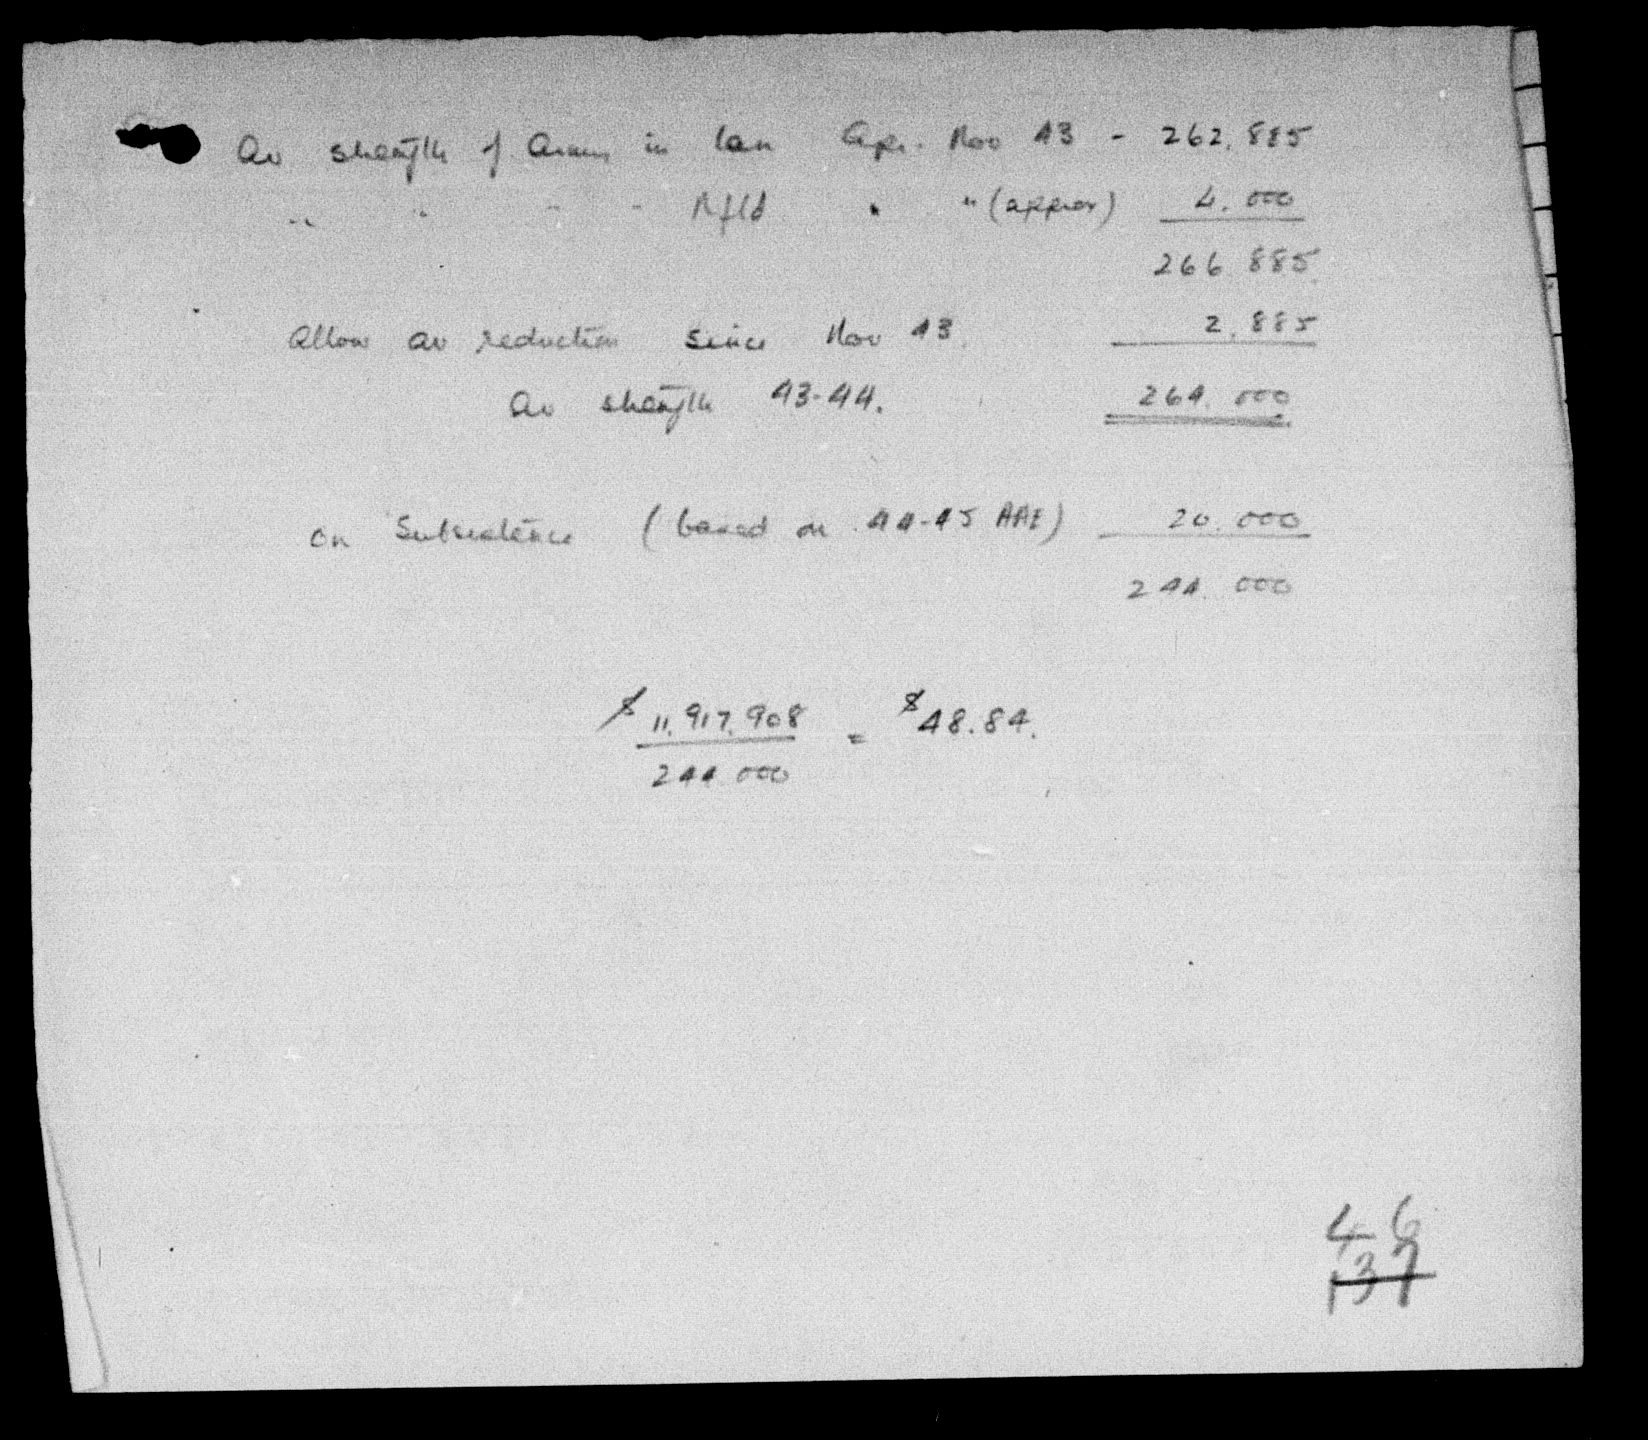 Av strength of Army in Can Apr. Nov 43 - 262,885
" " " " Nfld " " (approx) 4.000
266 885
Allow av reduction since Nov 43. 2,885
Av strength 43-44. 264.000
On Subsistence (based on 44-45 AAE) 20.000
244.000
$11,917,908 = $48.84.
244.000
46
137